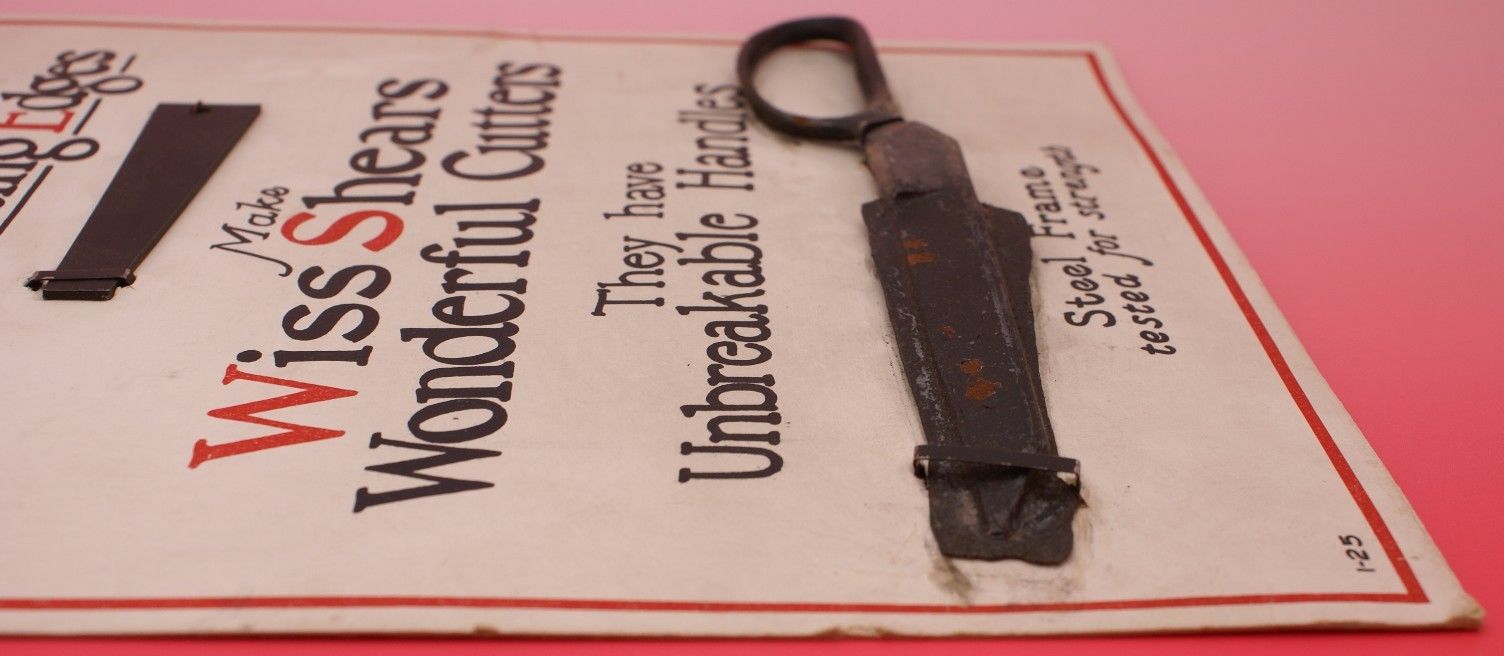 Edges
Make
Wiss Shears
Wonderful Cutters
They have
Unbreakable Handles
Steel Frame
tested for strength
1-25